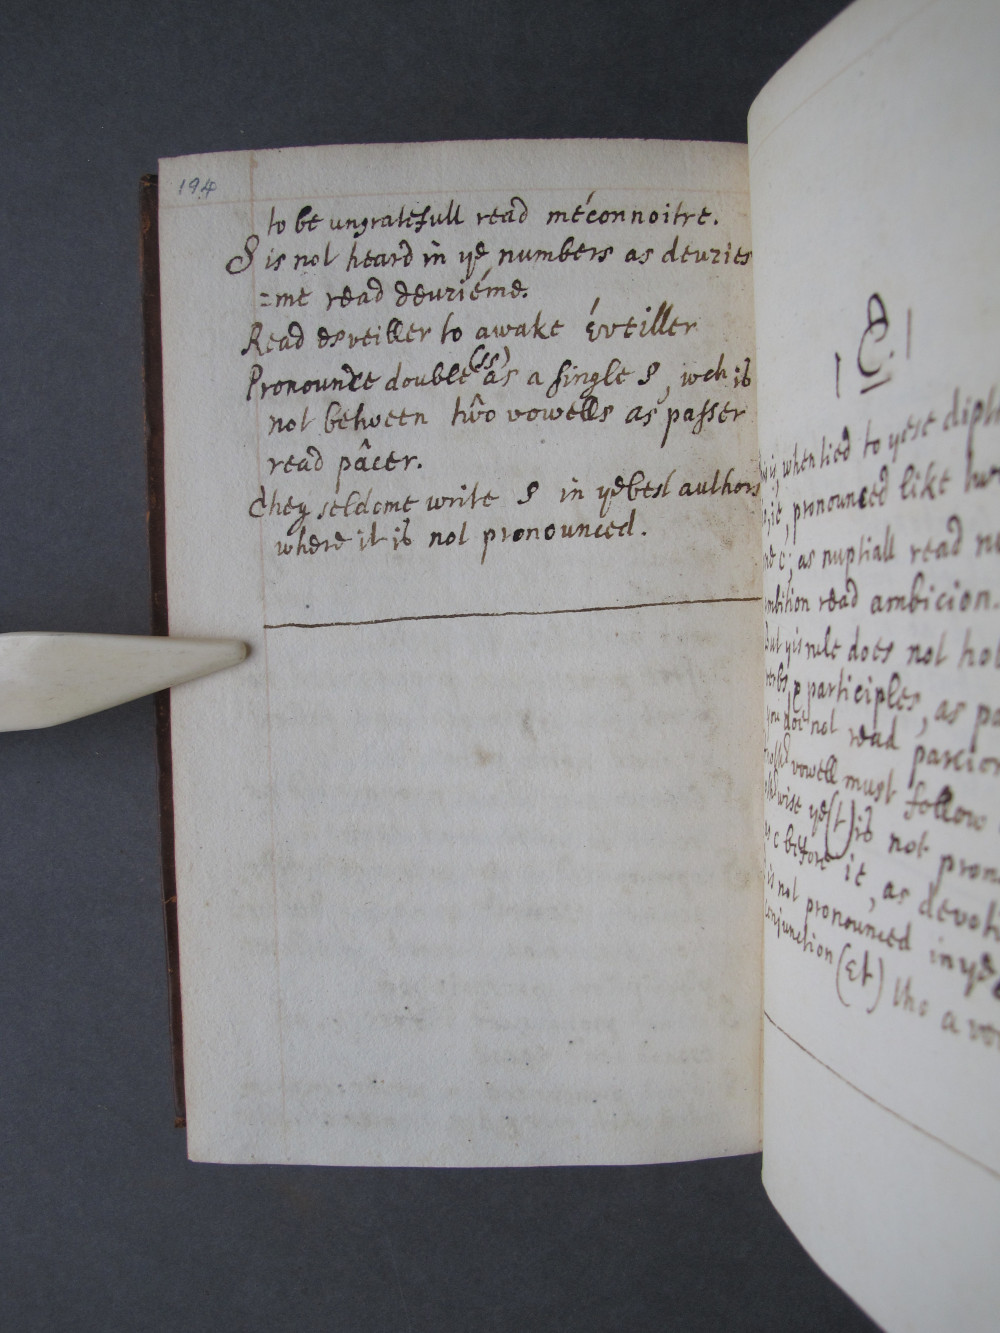 194
to be ungratefull read méconnoitre.
S is not heard in ye numbers as deuzies
=me read deuziéme.
Read esveiller to awake éveiller
(ss)
Pronounce double as a single S, wch is
not between two vowells as passer
read pâcer.
They seldome write S in ye best authors
where it is not pronounced.
when tied to yese diph
it, pronounced like
c; as nuptiall read
read ambicion.
but yis rule does not
participles, as
you doe not read parcion
vowell must follow
wise ye (t) is not
c before it, as
is not pronounced in ye
conjunction (Et) tho a